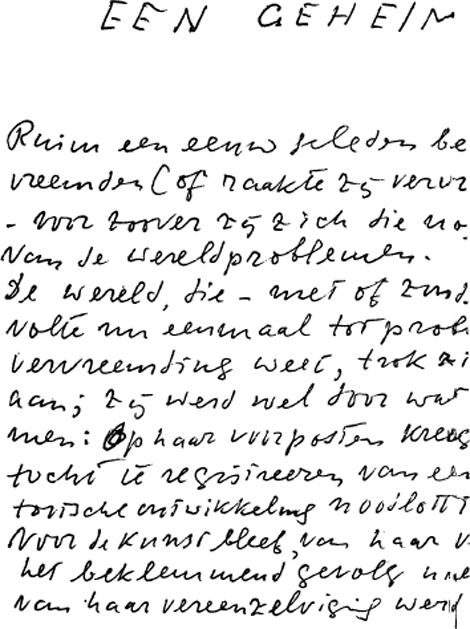 EEN GEHEIM
Ruim een eeuw geleden be
vreemden (of raakte zij vervr
- voor zoover zij zich die no
van de wereldproblemen.
De wereld, die - met of zond
volte nu eenmaal tot probl
vervreemding weet, trok zi
aan; zij werd wel door wat
men: Op haar voorposten kreeg
tocht te registreeren van een
torische ontwikkeling noodlotti
Voor de kunst bleef, van haar v
het beklemmend gevolg
van haar vereenzelviging werd